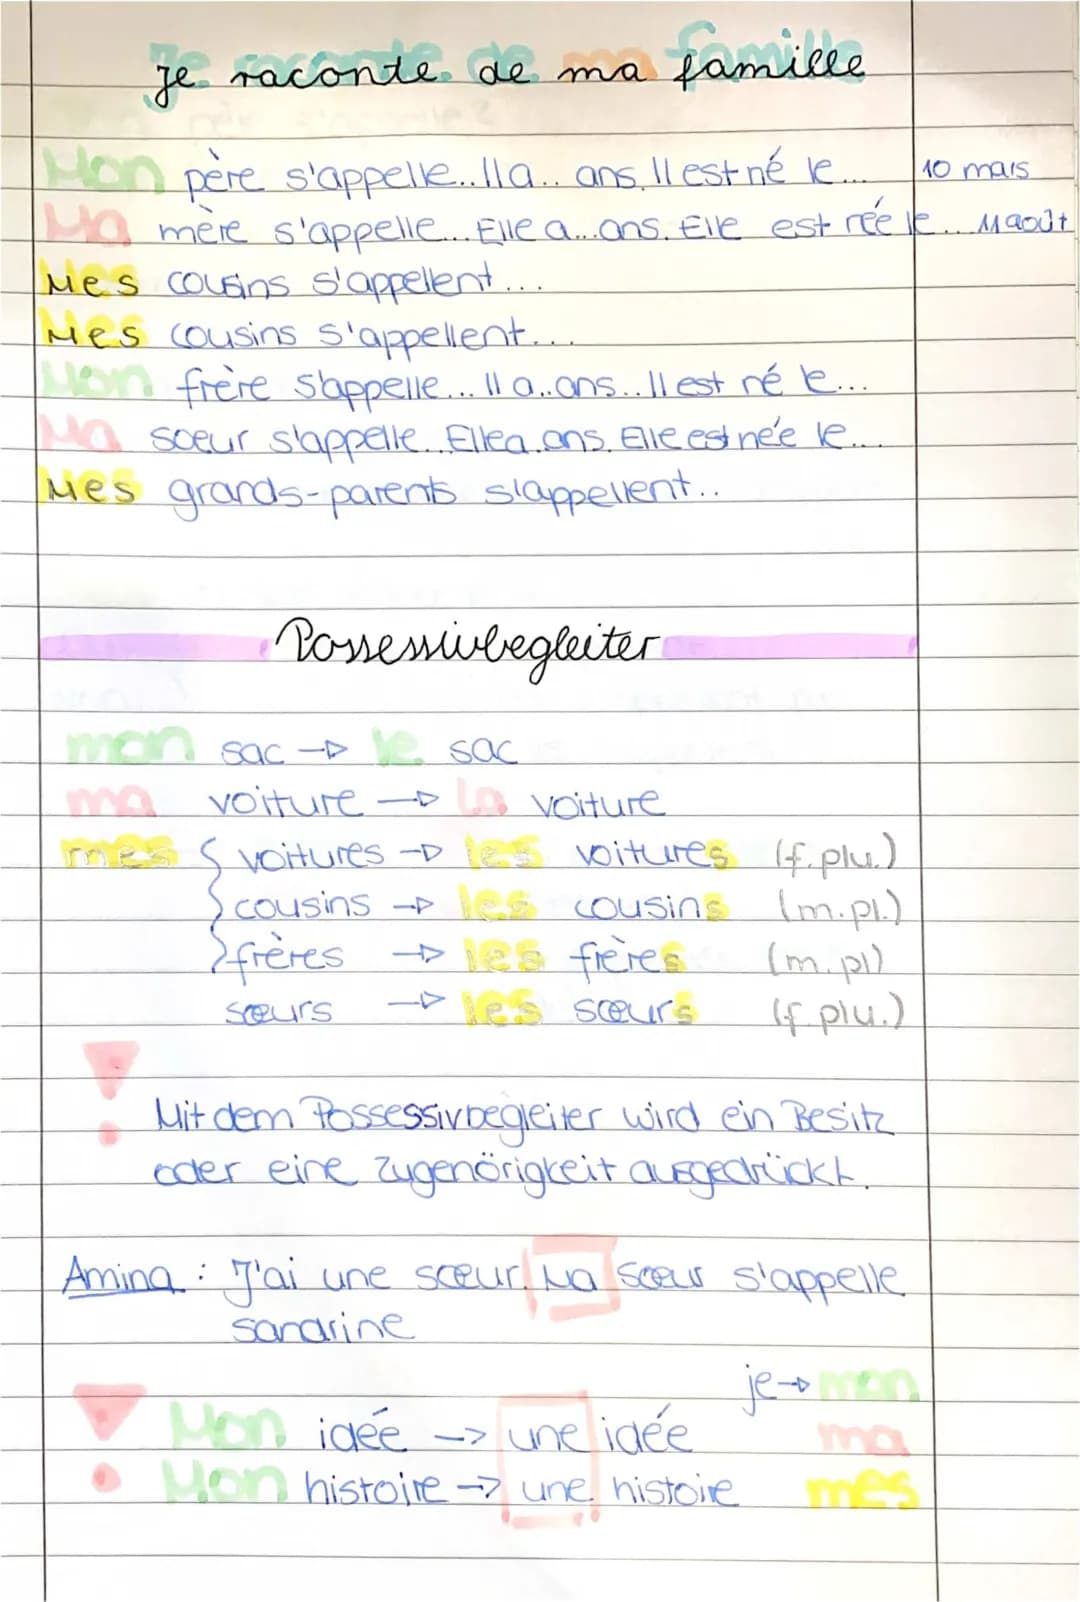 Je raconte de ma famille
Mon père s'appelle.. Il a.. ans. Il est né le... 10 mars
Ma mère s'appelle... Elle a...ans. Elle est née le... 11 août
Mes cousins s'appellent...
Mes cousins s'appellent...
Mon frère s'appelle... Il a..ans.. Il est né le...
Ma sœur s'appelle.. Elle a.ans. Elle est née le...
Mes grands-parents s'appellent..
Possessivbegleiter
mon sac → le sac
ma voiture → la voiture
mes { voitures → les voitures (f.plu.)
cousins → les cousins (m.pl.)
frères → les frères (m.pl)
sœurs → les sœurs (f.plu.)
! Mit dem Possessivbegleiter wird ein Besitz
oder eine Zugehörigkeit ausgedrückt.
Amina : J'ai une sœur. Ma sœur s'appelle
Sandrine
je → mon
! Mon idée → une idée ma
Mon histoire → une histoire mes